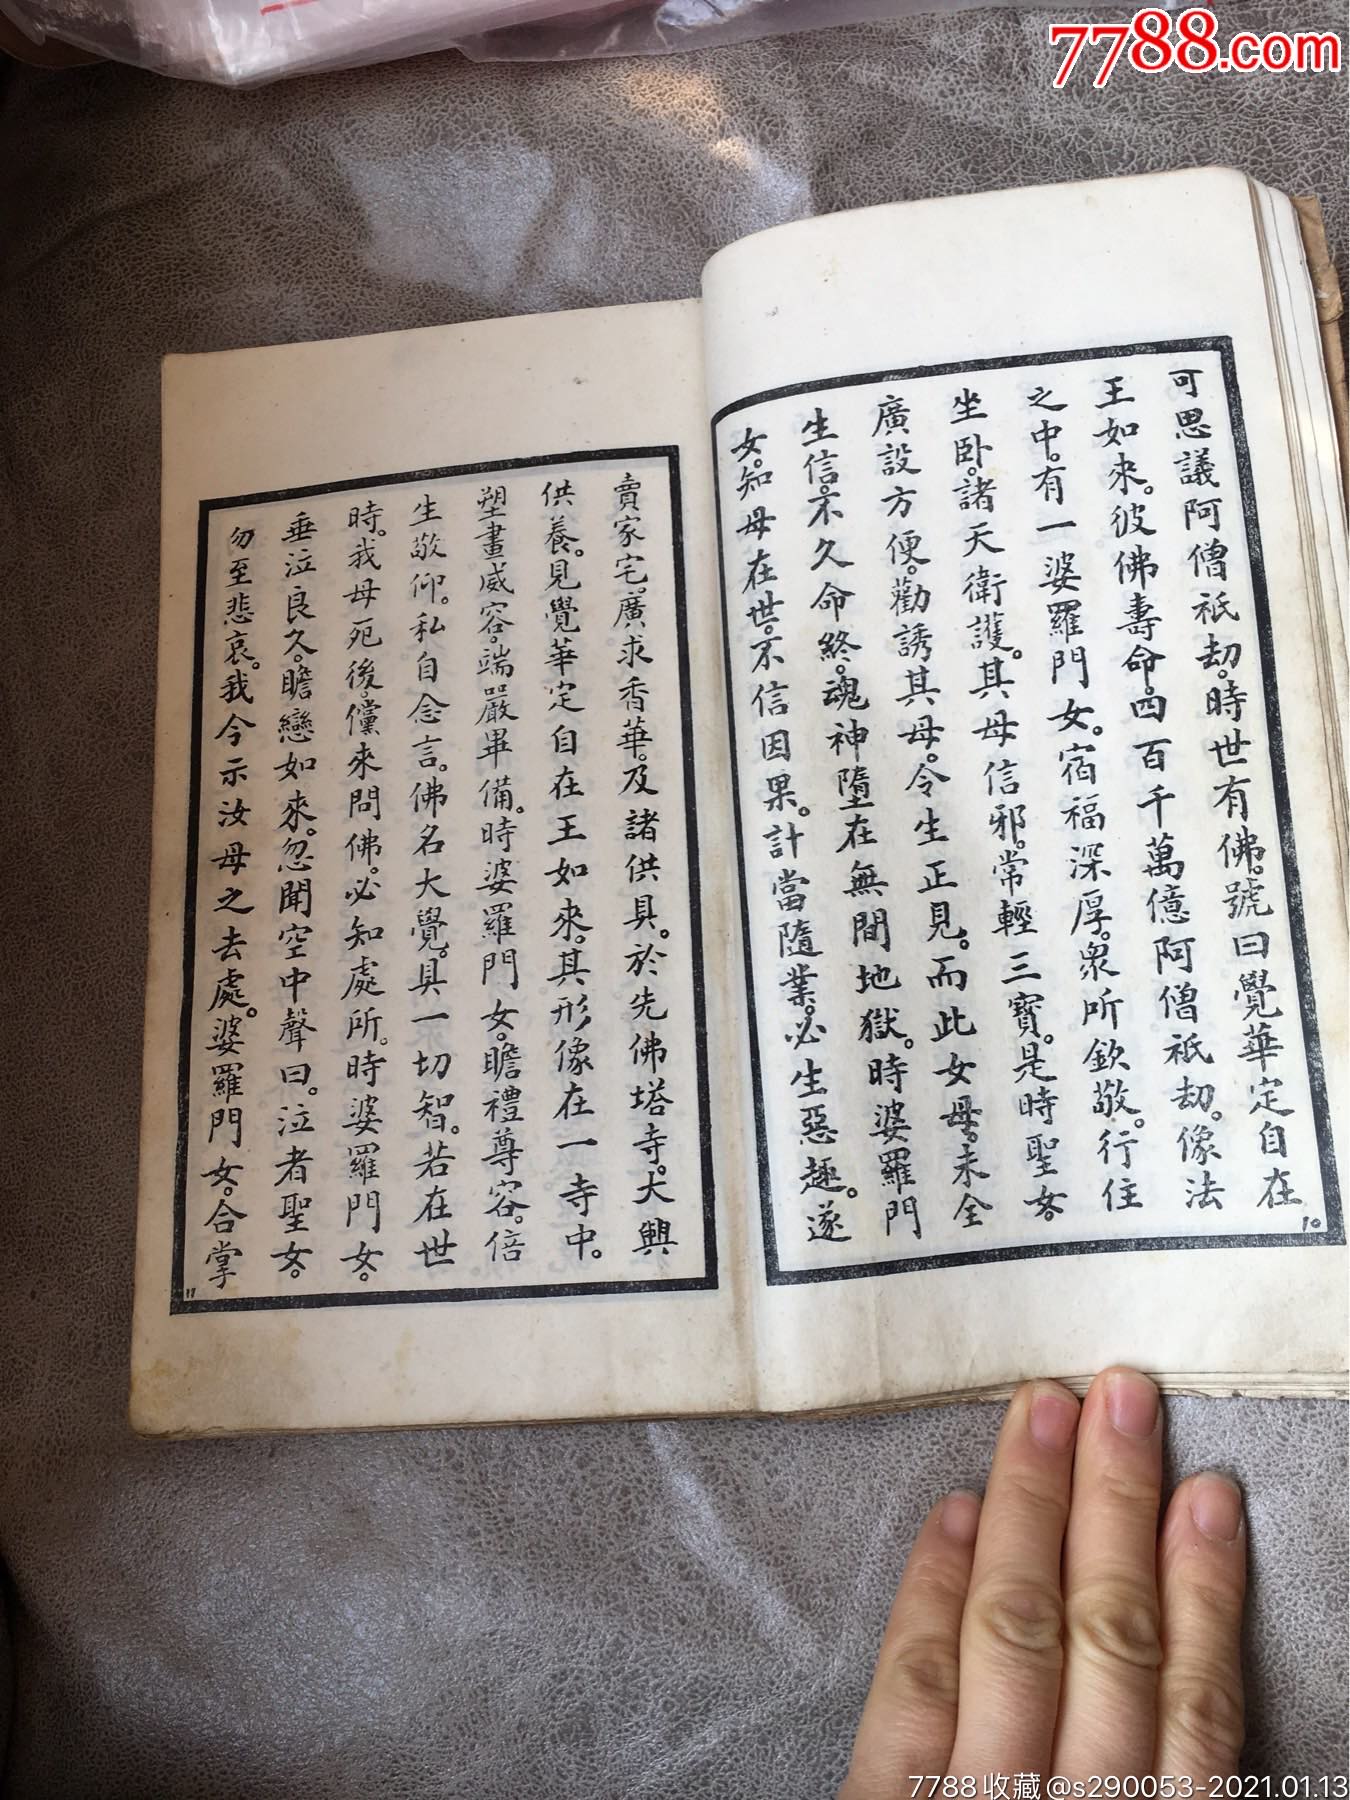 7788.com
可思議阿僧祇劫。時世有佛。號曰覺華定自在
王如來。彼佛壽命。四百千萬億阿僧祇劫。像法
之中。有一婆羅門女。宿福深厚。衆所欽敬。行住
坐卧。諸天衛護。其母信邪。常輕三寶。是時聖女。
廣設方便。勸誘其母。令生正見。而此女母。未全
生信。不久命終。魂神墮在無間地獄。時婆羅門
女。知母在世。不信因果。計當隨業。必生惡趣。遂
10
賣家宅。廣求香華。及諸供具。於先佛塔寺。大興
供養。見覺華定自在王如來。其形像在一寺中。
塑畫威容。端嚴畢備。時婆羅門女。瞻禮尊容。倍
生敬仰。私自念言。佛名大覺。具一切智。若在世
時。我母死後。儻來問佛。必知處所。時婆羅門女。
垂泣良久。瞻戀如來。忽聞空中聲曰。泣者聖女。
勿至悲哀。我今示汝母之去處。婆羅門女。合掌
11
7788收藏@s290053-2021.01.13